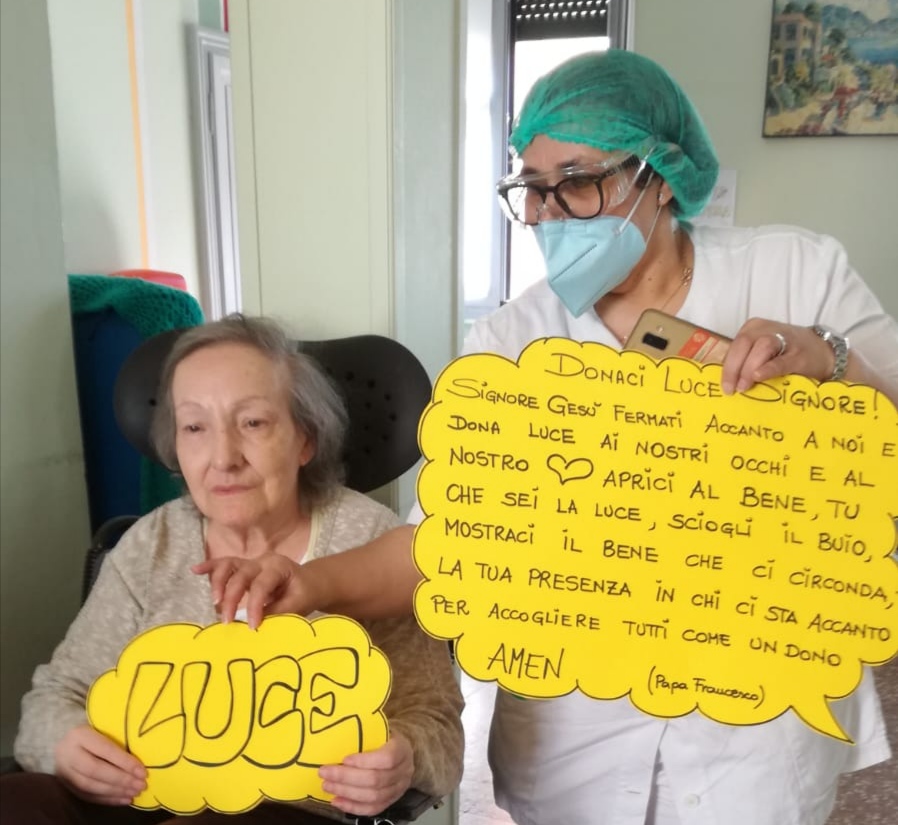 DONACI LUCE SIGNORE!
SIGNORE GESÙ FERMATI ACCANTO A NOI E
DONA LUCE AI NOSTRI OCCHI E AL
NOSTRO ♡ APRICI AL BENE, TU
CHE SEI LA LUCE, SCIOGLI IL BUIO,
MOSTRACI IL BENE CHE CI CIRCONDA,
LA TUA PRESENZA IN CHI CI STA ACCANTO
PER ACCOGLIERE TUTTI COME UN DONO
AMEN
(Papa Francesco)
LUCE